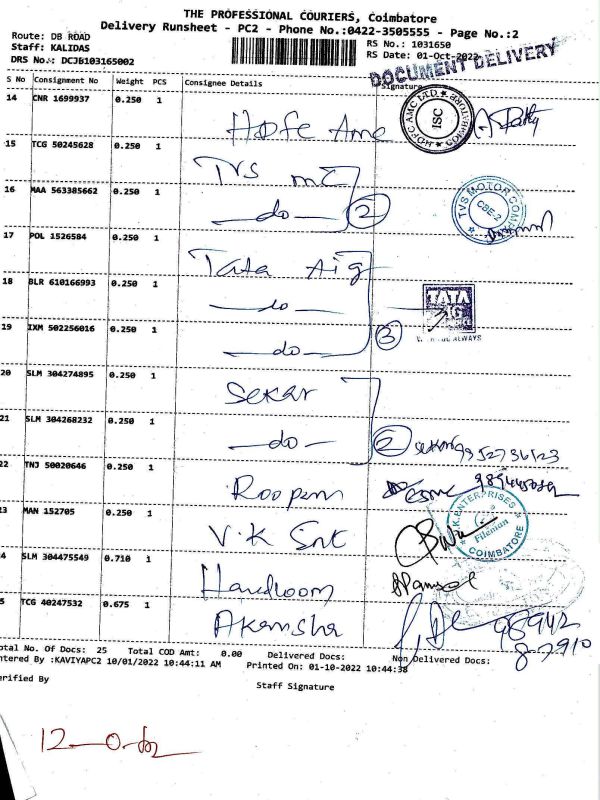 THE PROFESSIONAL COURIERS, Coimbatore
Delivery Runsheet - PC2 - Phone No.:0422-3505555 - Page No.:2
Route: DB ROAD
Staff: KALIDAS
DRS No.: DCJB103165002
RS No.: 1031650
RS Date: 01-Oct-2022
DOCUMENT DELIVERY
S No Consignment No Weight PCS Consignee Details Signature
14 CNR 1699937 0.250 1 Hdfc Amc
HDFC AMC LTD. COIMBATORE ISC
15 TCG 50245628 0.250 1 TVS mc
16 MAA 563385662 0.250 1 —do— 2
TVS MOTOR COM CBE-2
17 POL 1526584 0.250 1 Tata Aig
18 BLR 610166993 0.250 1 —do—
TATA AIG
WITH YOU ALWAYS
19 IXM 502256016 0.250 1 —do— 3
20 SLM 304274895 0.250 1 Sekar
21 SLM 304268232 0.250 1 —do— 2 sekar 9952736123
22 TNJ 50020646 0.250 1 Roopam
3 MAN 152705 0.250 1 V.K Ent
V.K.ENTERPRISES Filénian COIMBATORE
4 SLM 304475549 0.710 1 Handloom
5 TCG 40247532 0.675 1 Akansha
98942
otal No. Of Docs: 25 Total COD Amt: 0.00 Delivered Docs: Non Delivered Docs:
ntered By :KAVIYAPC2 10/01/2022 10:44:11 AM Printed On: 01-10-2022 10:44:38
erified By
Staff Signature